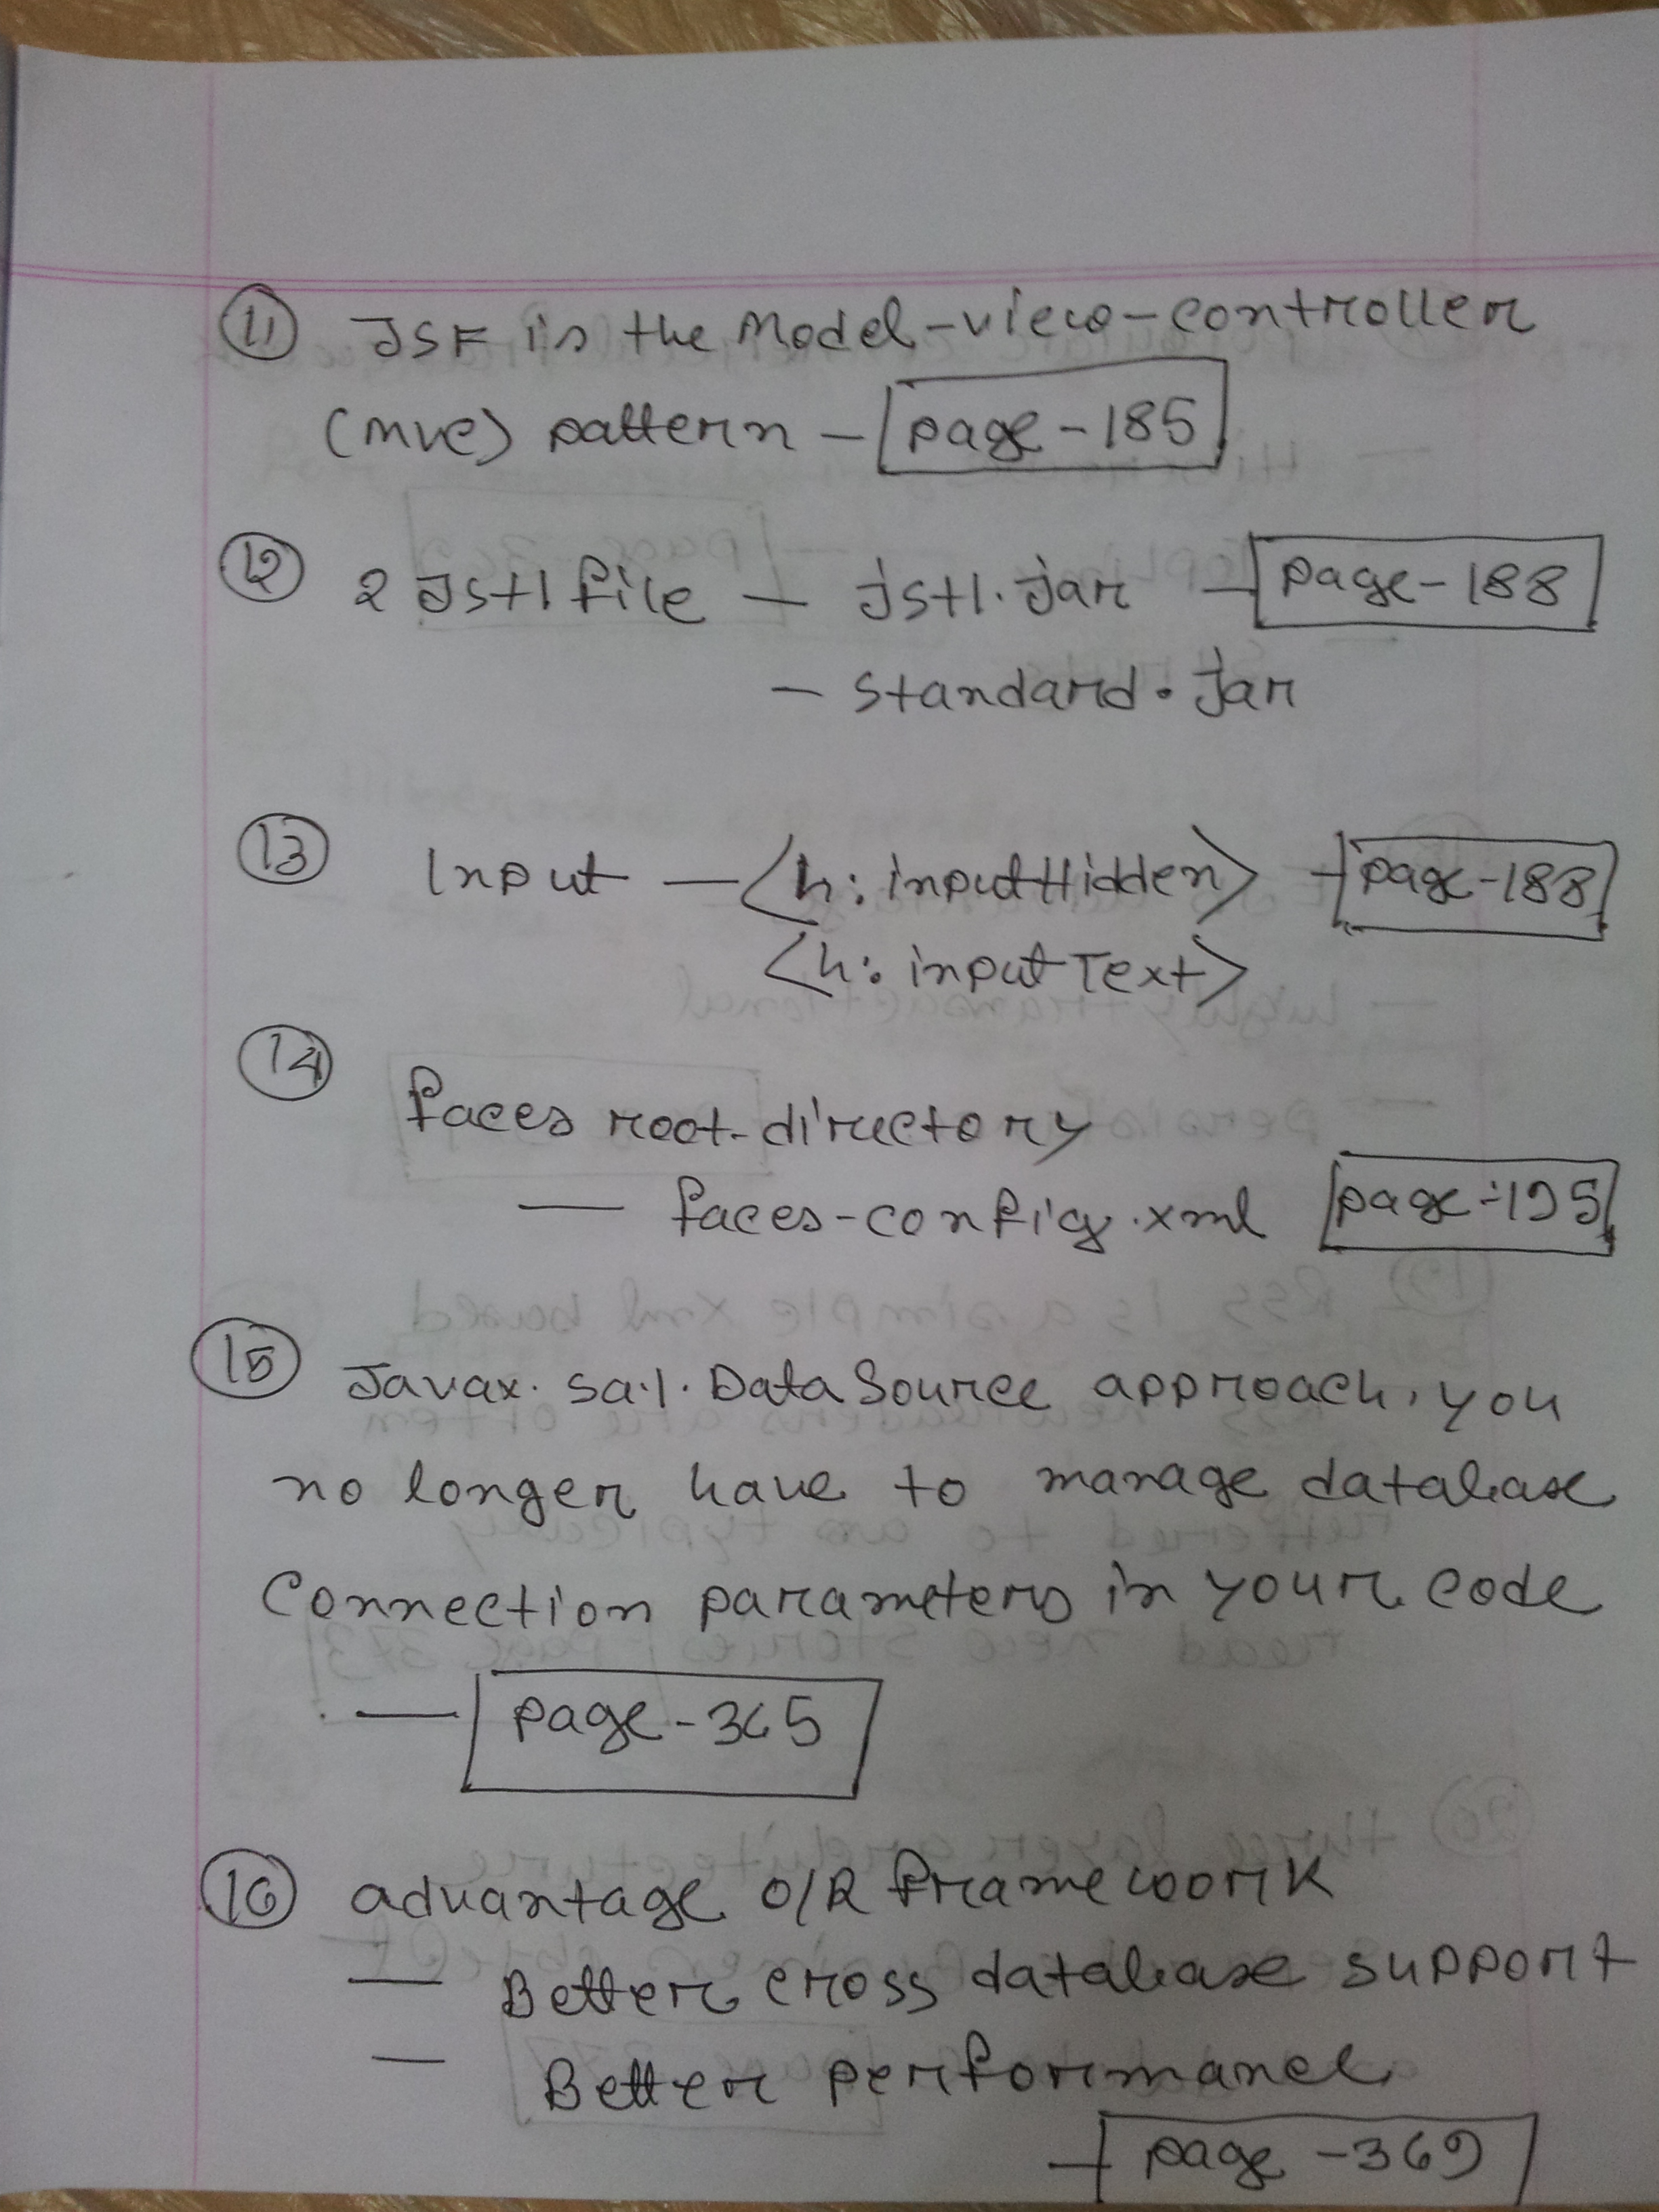 11 JSF is the Model-view-controller
(mvc) pattern - page-185
12 2 Jstl file - jstl.jar - page-188
- standard.jar
13 Input - <h:inputHidden> - page-188
<h:inputText>
14
faces root-directory
- faces-config.xml page-195
15 Javax.sql.DataSource approach, you
no longer have to manage database
Connection parameters in your code
- page-365
16 advantage O/R framework
- Better cross database support
- Better performance
- page-369